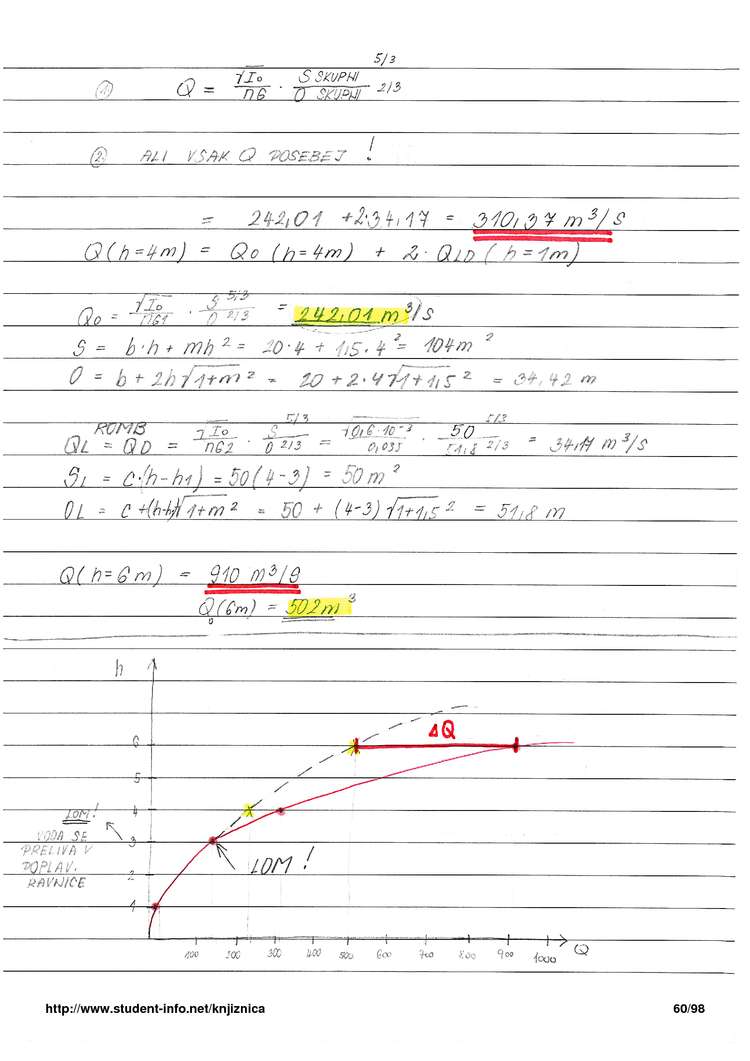 ① Q = √I₀/nG · S SKUPNI^5/3 / O SKUPNI^2/3
② ALI VSAK Q POSEBEJ !
= 242,01 + 2·34,17 = 310,37 m³/s
Q(h=4m) = Q₀ (h=4m) + 2·QLD (h=1m)
Q₀ = √I₀/nG1 · S^5/3 / O^2/3 = 242,01 m³/s
S = b·h + mh² = 20·4 + 1,5·4² = 104 m²
O = b + 2h√1+m² = 20 + 2·4√1+1,5² = 34,42 m
ROMB
QL = QD = √I₀/nG2 · S^5/3 / O^2/3 = √0,6·10⁻³/0,035 · 50^5/3 / 51,8^2/3 = 34,17 m³/s
SL = c·(h-h1) = 50(4-3) = 50 m²
OL = c+(h-h1)√1+m² = 50 + (4-3)√1+1,5² = 51,8 m
Q(h=6m) = 910 m³/s
Q₀(6m) = 502 m³
h
ΔQ
6
5
4
LOM!
VODA SE
PRELIVA V
DOPLAV.
RAVNICE
3
LOM !
2
1
100 200 300 400 500 600 700 800 900 1000 Q
http://www.student-info.net/knjiznica 60/98